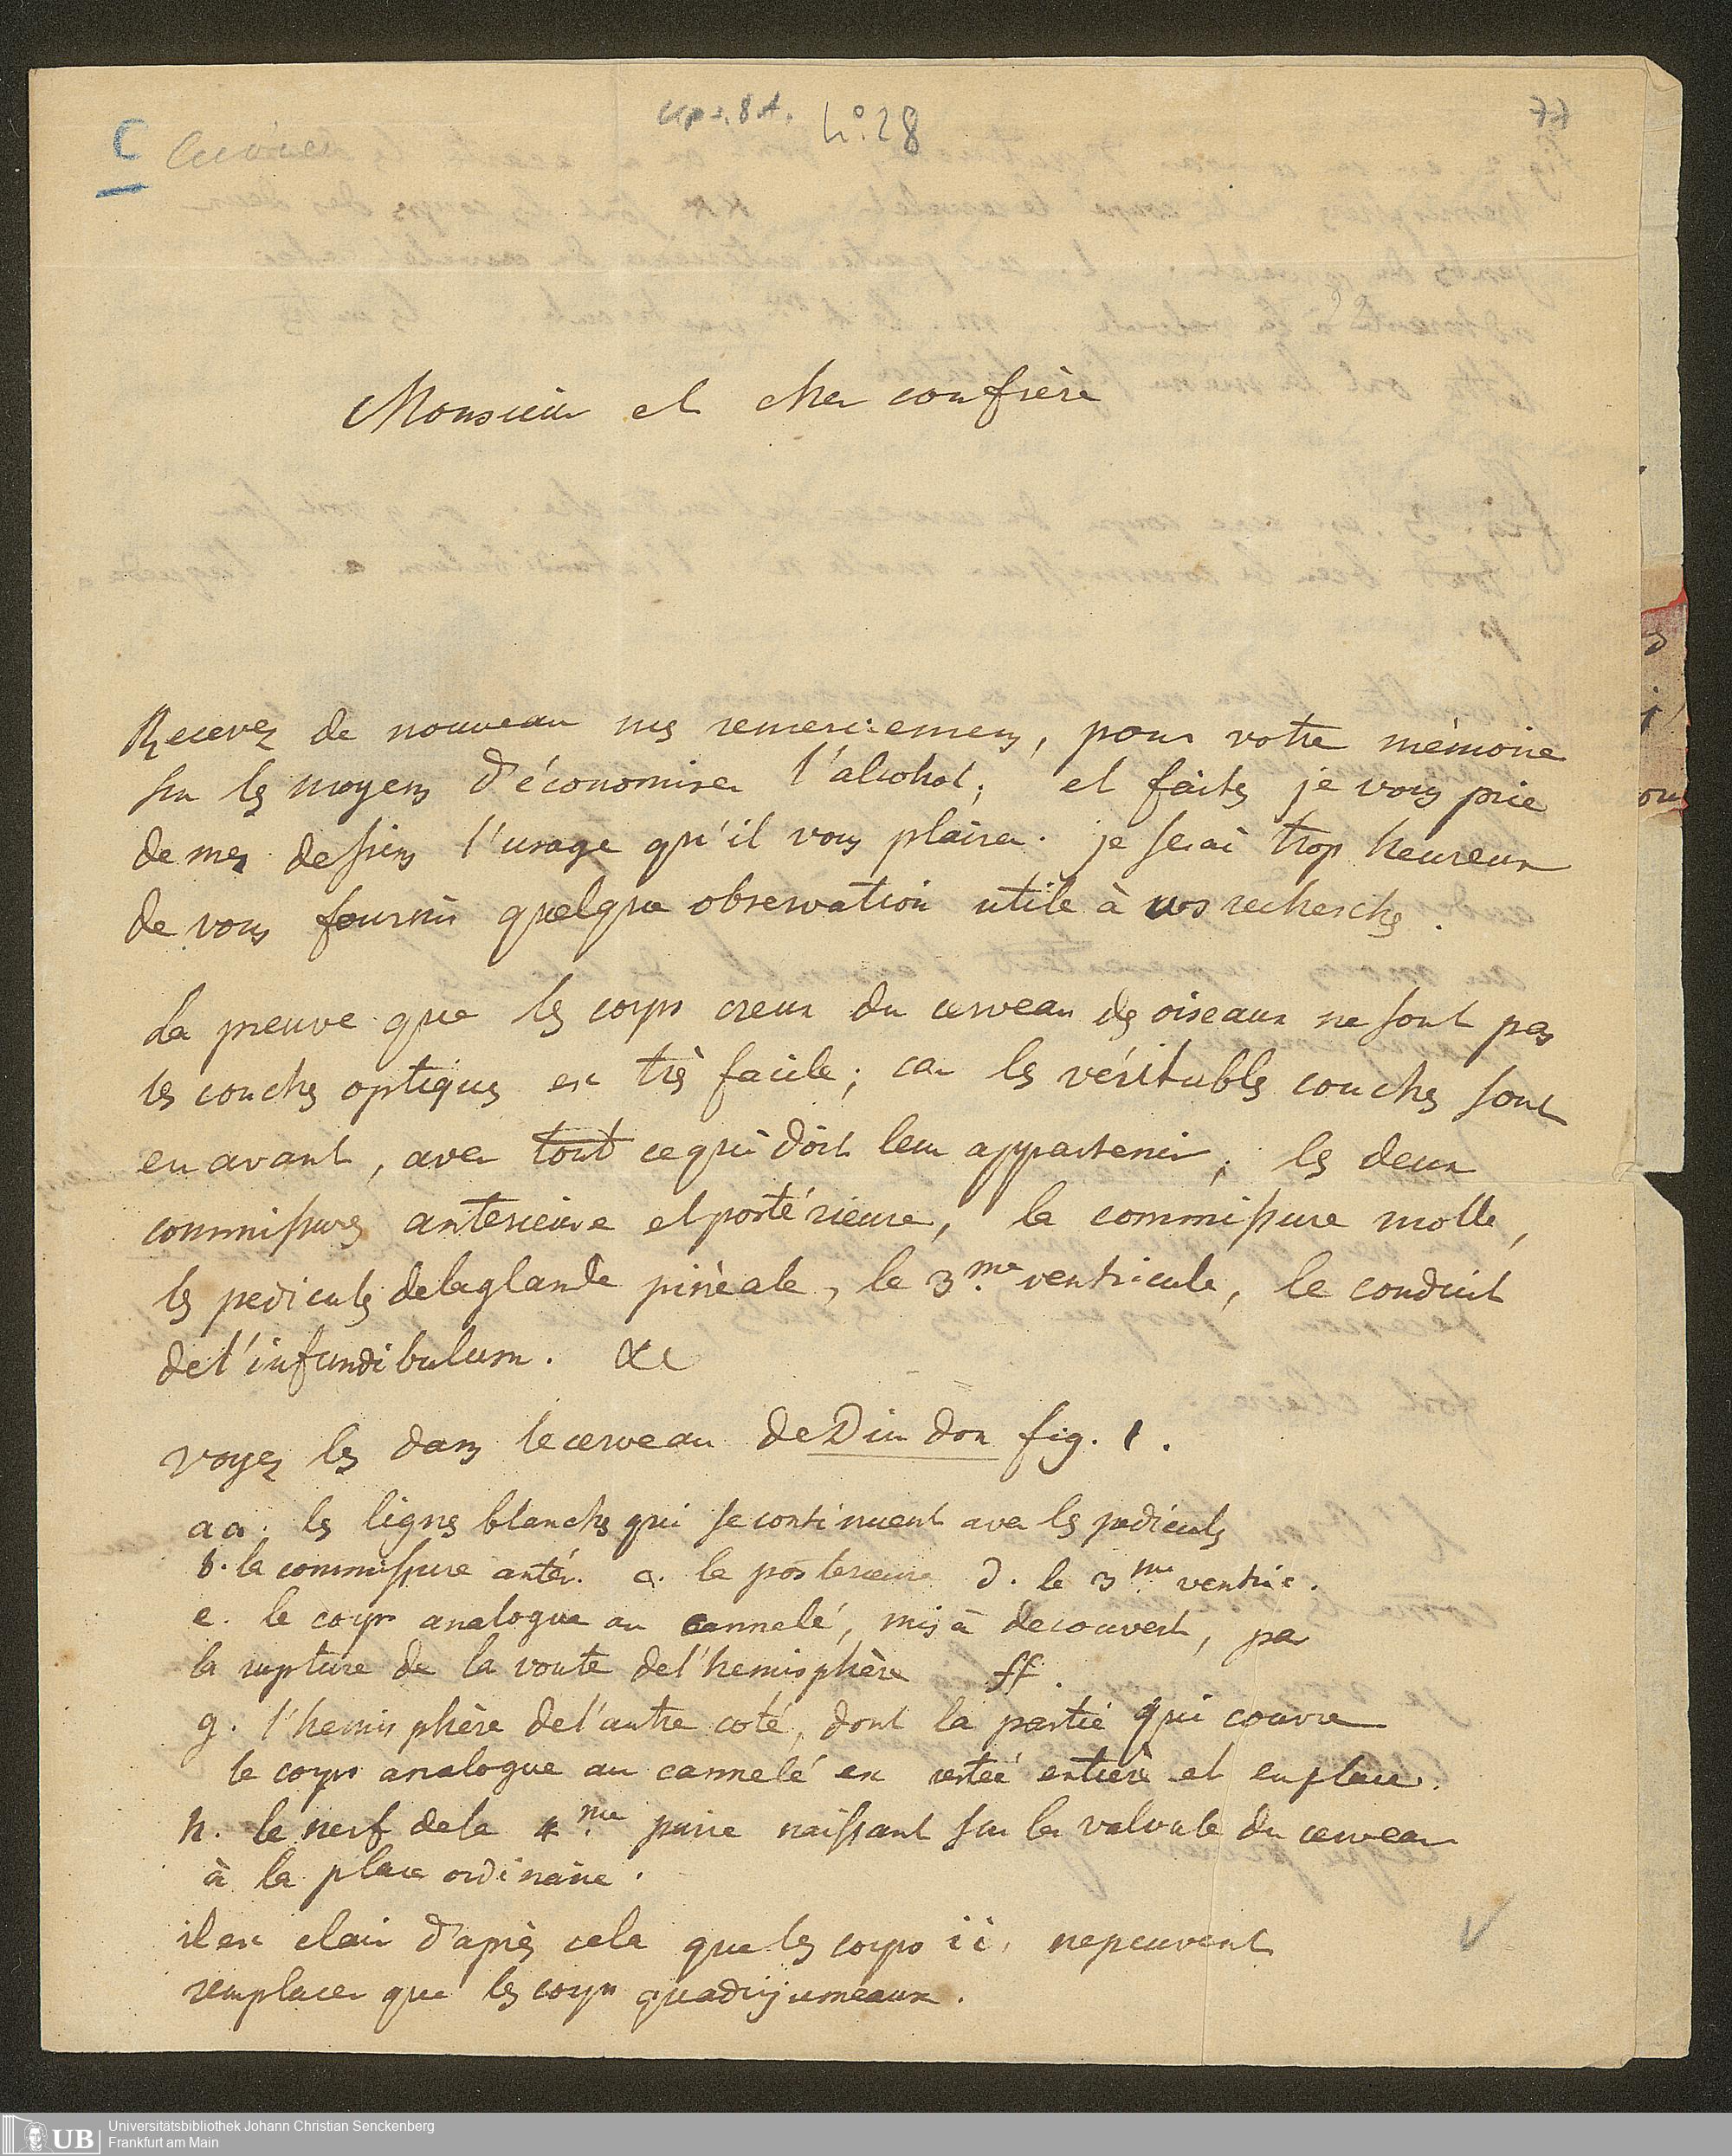 C Cuvier
No. 28
77
Monsieur et cher confrère
Recevez de nouveau mes remerciemens, pour votre mémoire
sur les moyens d'économiser l'alcohol; et faites je vous prie
de mes dessins l'usage qu'il vous plaira. je serai trop heureux
de vous fournir quelque observation utile à vos recherches.
La preuve que les corps creux du cerveau des oiseaux ne sont pas
les couches optiques est très facile; car les véritables couches sont
en avant, avec tout ce qui doit leur appartenir, les deux
commissures anterieure et postérieure, la commissure molle,
les pedicules de la glande pinéale, le 3me ventricule, le conduit
de l'infundibulum. &c
voyez les dans le cerveau de Dindon fig. 1.
aa. les lignes blanches qui se continuent avec les pedicules
b. la commissure antér. c. la posterieure d. le 3me ventric.
e. le corps analogue au cannelé, mis à decouvert, par
la rupture de la voute de l'hemisphère ff.
g. l'hemisphère de l'autre coté, dont la partie qui couvre
le corps analogue au cannelé est restée entière et en place.
h. le nerf de la 4me paire naissant sur la valvule du cerveau
à la place ordinaire.
il est clair d'après cela que les corps ii, ne peuvent
remplacer que les corps quadrijumeaux.
UB
Universitätsbibliothek Johann Christian Senckenberg
Frankfurt am Main